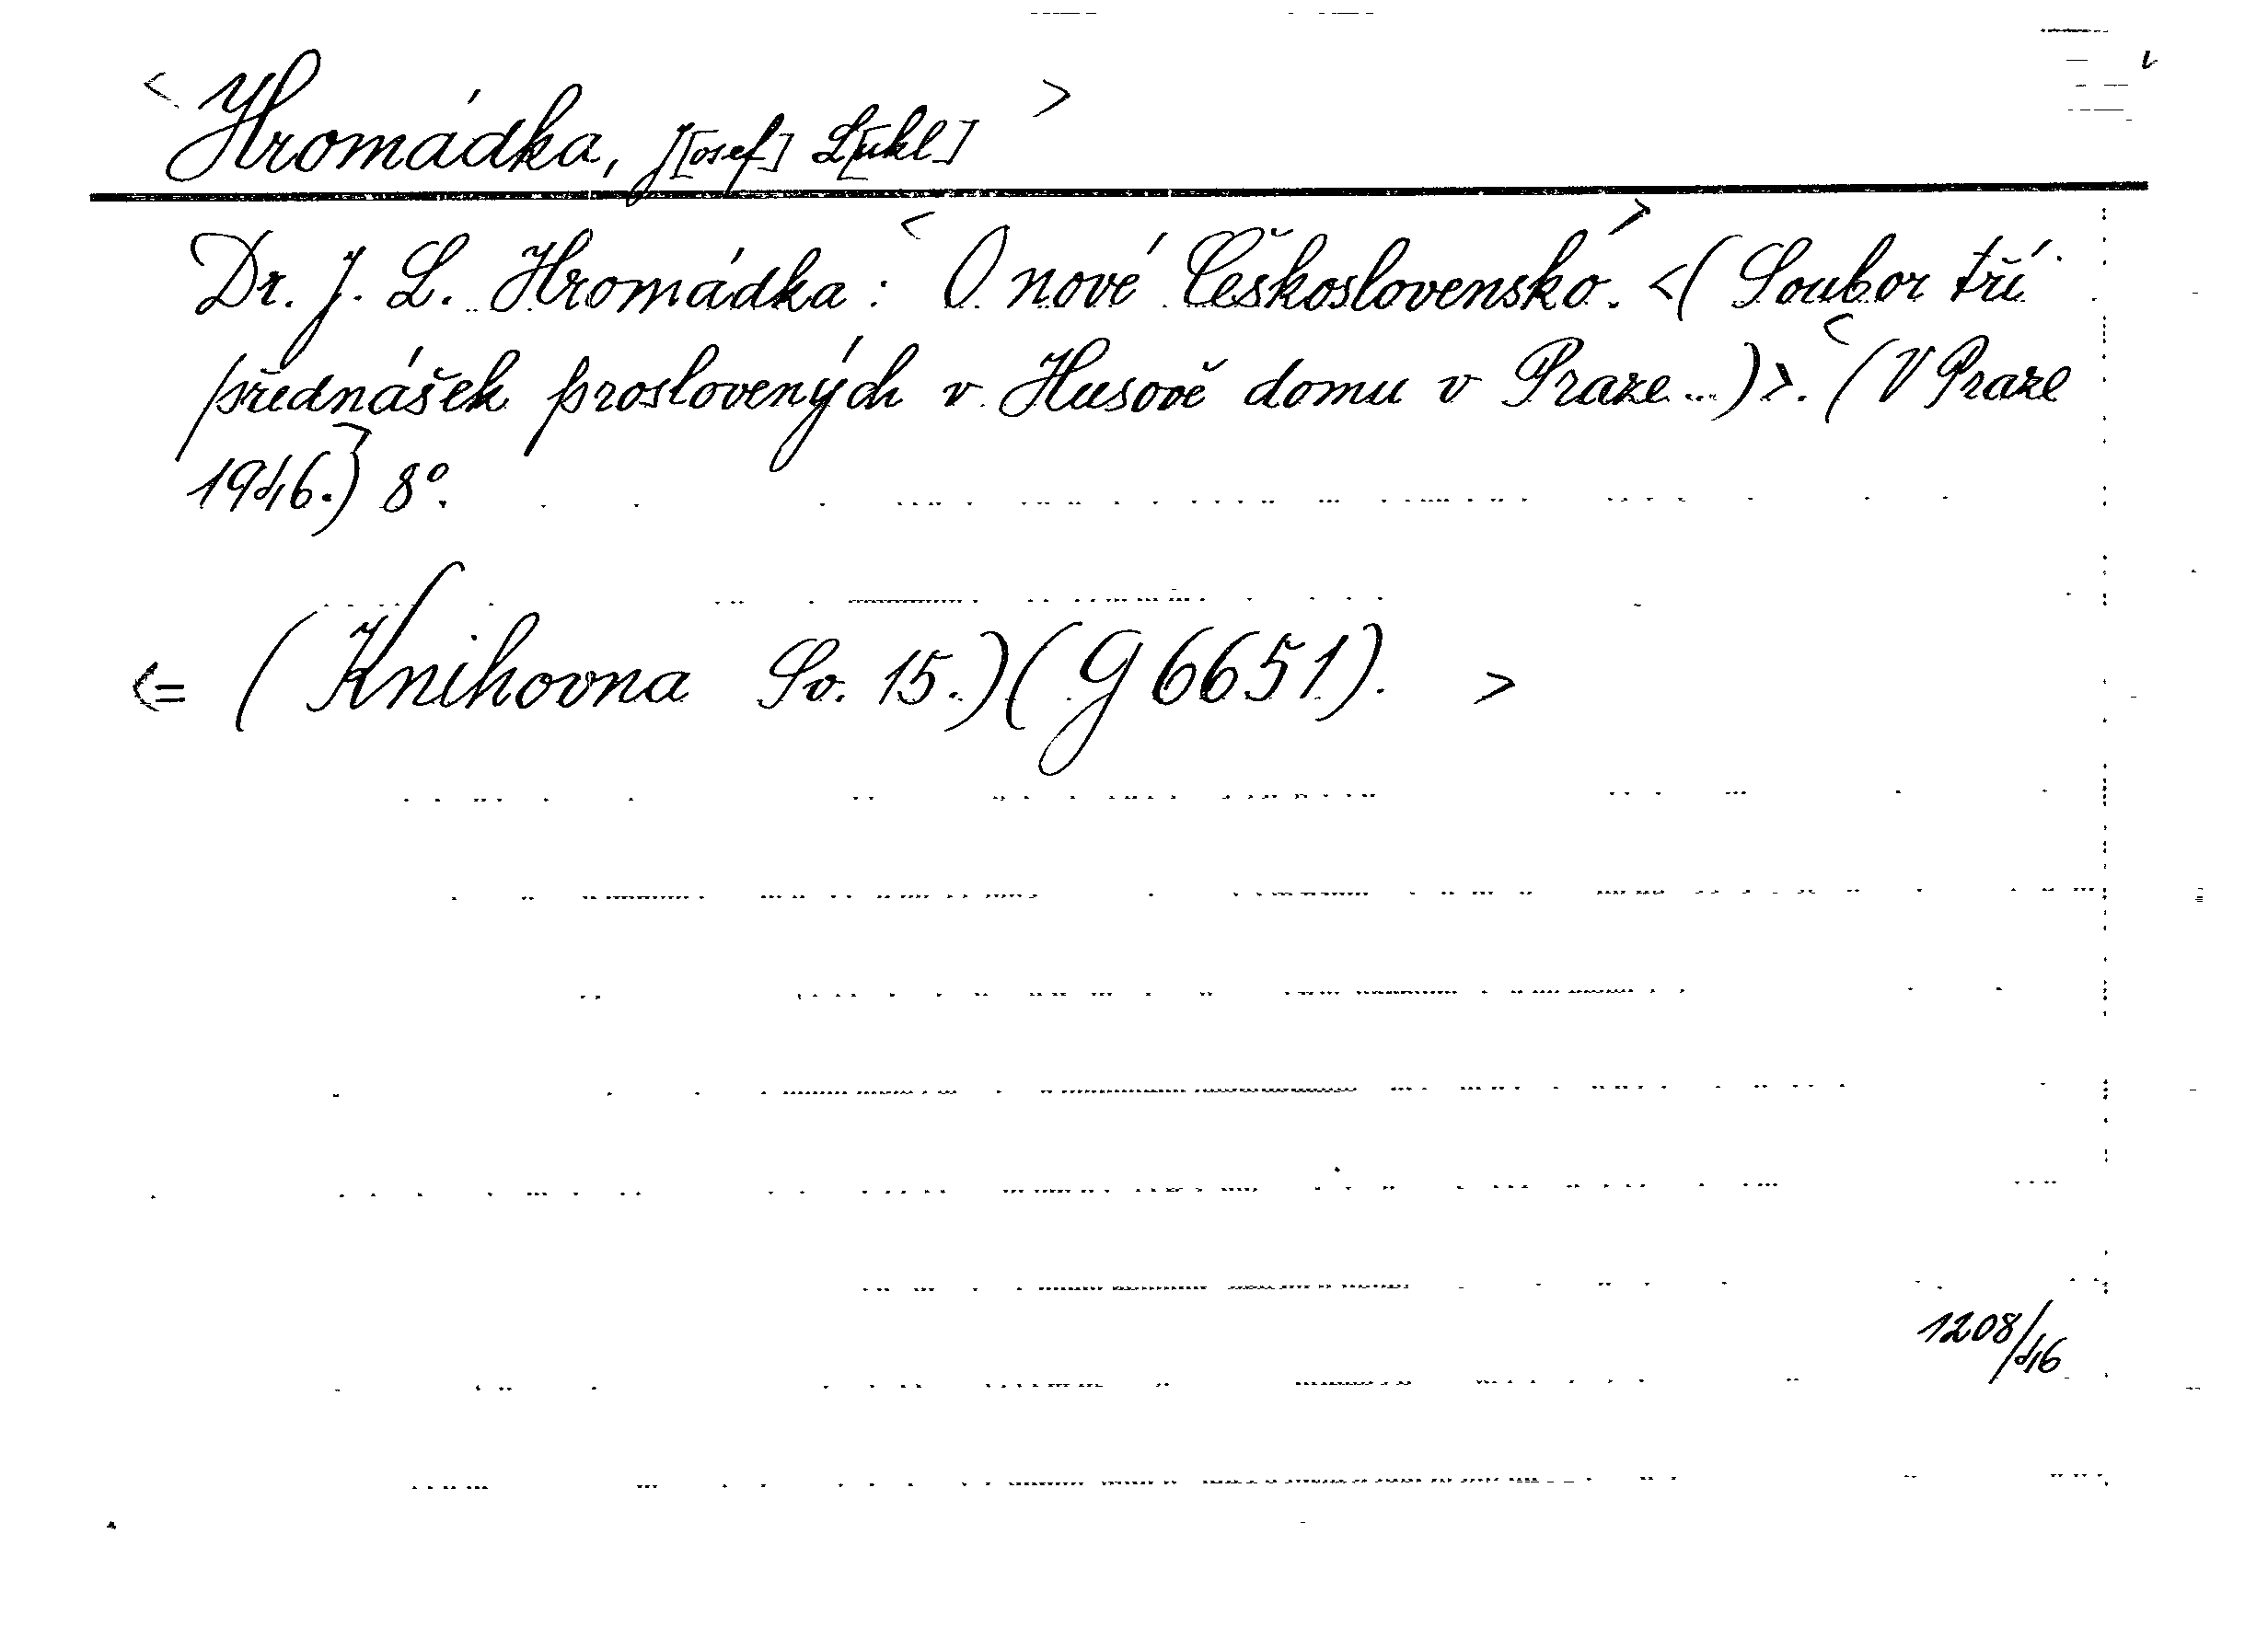 < Hromádka, J[osef] L[ukl] >
Dr. J. L. Hromádka: <O nové Československo.> <(Soubor tří
přednášek proslovených v Husově domu v Praze...)>. <(V Praze
1946.)> 8°.
<= (Knihovna Sv. 15.)(G 6651). >
1208/46